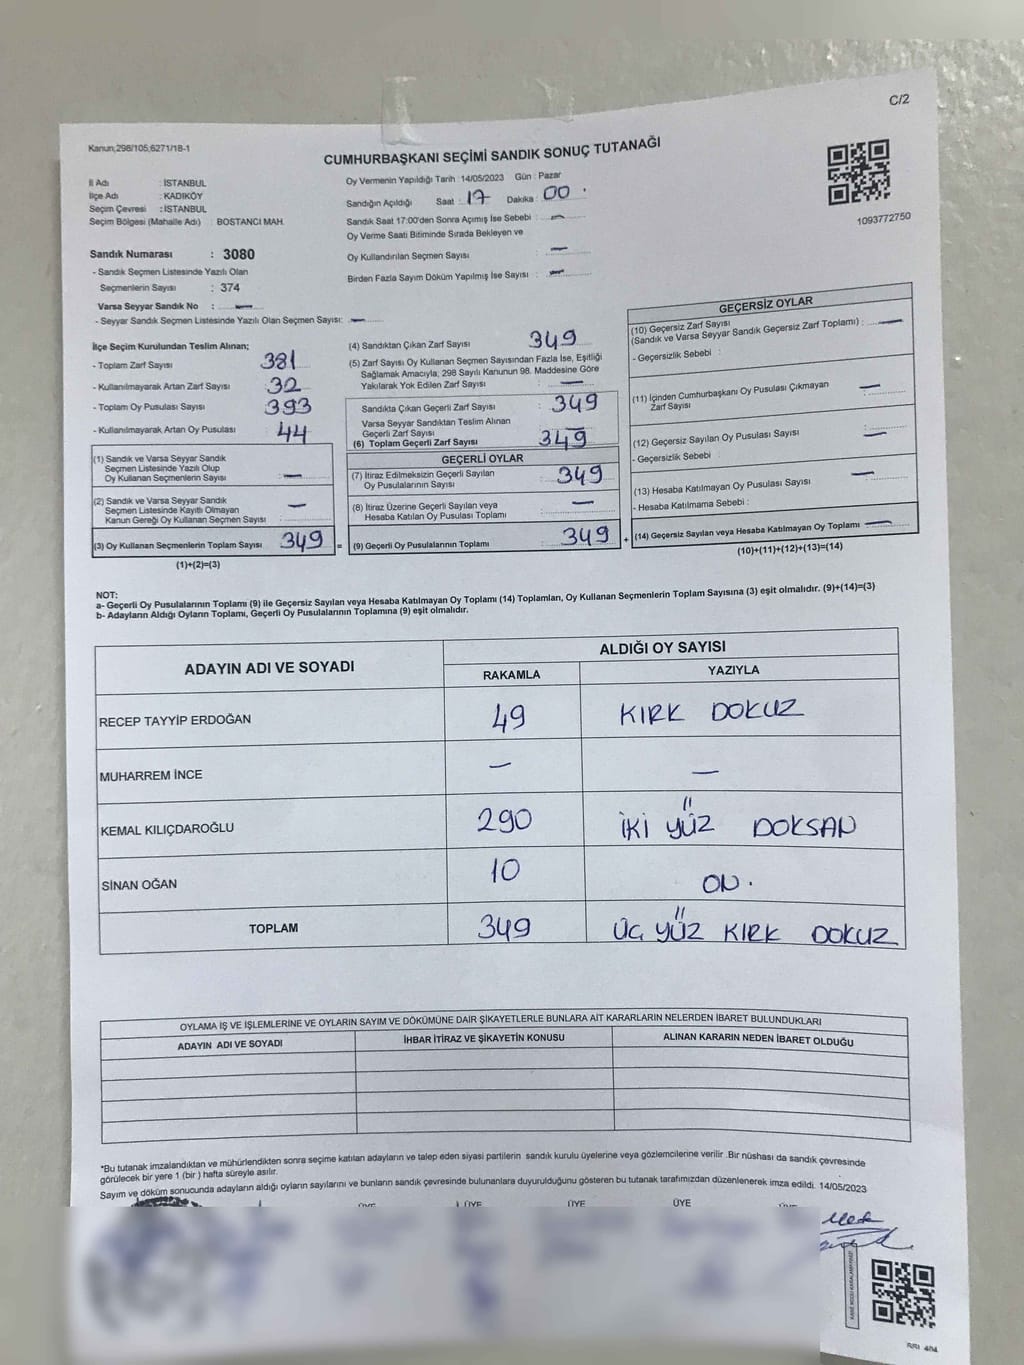 C/2
Kanun;298/105,6271/18-1
CUMHURBAŞKANI SEÇİMİ SANDIK SONUÇ TUTANAĞI
İl Adı : İSTANBUL
İlçe Adı : KADIKÖY
Seçim Çevresi : İSTANBUL
Seçim Bölgesi (Mahalle Adı) : BOSTANCI MAH.
Oy Vermenin Yapıldığı Tarih : 14/05/2023 Gün : Pazar
Sandığın Açıldığı Saat : 17 Dakika : 00
Sandık Saat 17:00'den Sonra Açımış İse Sebebi : —
Oy Verme Saati Bitiminde Sırada Bekleyen ve
Oy Kullandırılan Seçmen Sayısı : —
Birden Fazla Sayım Döküm Yapılmış İse Sayısı : —
1093772750
Sandık Numarası : 3080
- Sandık Seçmen Listesinde Yazılı Olan
Seçmenlerin Sayısı : 374
Varsa Seyyar Sandık No : —
- Seyyar Sandık Seçmen Listesinde Yazılı Olan Seçmen Sayısı: —
İlçe Seçim Kurulundan Teslim Alınan;
- Toplam Zarf Sayısı : 381
- Kullanılmayarak Artan Zarf Sayısı : 32
- Toplam Oy Pusulası Sayısı : 393
- Kullanılmayarak Artan Oy Pusulası : 44
(1) Sandık ve Varsa Seyyar Sandık
Seçmen Listesinde Yazılı Olup
Oy Kullanan Seçmenlerin Sayısı : —
(2) Sandık ve Varsa Seyyar Sandık
Seçmen Listesinde Kayıtlı Olmayan
Kanun Gereği Oy Kullanan Seçmen Sayısı : —
(3) Oy Kullanan Seçmenlerin Toplam Sayısı : 349 =
(1)+(2)=(3)
(4) Sandıktan Çıkan Zarf Sayısı : 349
(5) Zarf Sayısı Oy Kullanan Seçmen Sayısından Fazla İse, Eşitliği
Sağlamak Amacıyla, 298 Sayılı Kanunun 98. Maddesine Göre
Yakılarak Yok Edilen Zarf Sayısı : —
Sandıkta Çıkan Geçerli Zarf Sayısı : 349
Varsa Seyyar Sandıktan Teslim Alınan
Geçerli Zarf Sayısı : —
(6) Toplam Geçerli Zarf Sayısı : 349
GEÇERLİ OYLAR
(7) İtiraz Edilmeksizin Geçerli Sayılan
Oy Pusulalarının Sayısı : 349
(8) İtiraz Üzerine Geçerli Sayılan veya
Hesaba Katılan Oy Pusulası Toplamı : —
(9) Geçerli Oy Pusulalarının Toplamı : 349 +
GEÇERSİZ OYLAR
(10) Geçersiz Zarf Sayısı
(Sandık ve Varsa Seyyar Sandık Geçersiz Zarf Toplamı) : —
- Geçersizlik Sebebi :
(11) İçinden Cumhurbaşkanı Oy Pusulası Çıkmayan
Zarf Sayısı : —
(12) Geçersiz Sayılan Oy Pusulası Sayısı : —
- Geçersizlik Sebebi :
(13) Hesaba Katılmayan Oy Pusulası Sayısı : —
- Hesaba Katılmama Sebebi :
(14) Geçersiz Sayılan veya Hesaba Katılmayan Oy Toplamı : —
(10)+(11)+(12)+(13)=(14)
NOT:
a- Geçerli Oy Pusulalarının Toplamı (9) ile Geçersiz Sayılan veya Hesaba Katılmayan Oy Toplamı (14) Toplamları, Oy Kullanan Seçmenlerin Toplam Sayısına (3) eşit olmalıdır. (9)+(14)=(3)
b- Adayların Aldığı Oyların Toplamı, Geçerli Oy Pusulalarının Toplamına (9) eşit olmalıdır.
ADAYIN ADI VE SOYADI ALDIĞI OY SAYISI
RAKAMLA YAZIYLA
RECEP TAYYİP ERDOĞAN 49 KIRK DOKUZ
MUHARREM İNCE — —
KEMAL KILIÇDAROĞLU 290 İKİ YÜZ DOKSAN
SİNAN OĞAN 10 ON.
TOPLAM 349 ÜÇ YÜZ KIRK DOKUZ
OYLAMA İŞ VE İŞLEMLERİNE VE OYLARIN SAYIM VE DÖKÜMÜNE DAİR ŞİKAYETLERLE BUNLARA AİT KARARLARIN NELERDEN İBARET BULUNDUKLARI
ADAYIN ADI VE SOYADI İHBAR İTİRAZ VE ŞİKAYETİN KONUSU ALINAN KARARIN NEDEN İBARET OLDUĞU
*Bu tutanak imzalandıktan ve mühürlendikten sonra seçime katılan adayların ve talep eden siyasi partilerin sandık kurulu üyelerine veya gözlemcilerine verilir .Bir nüshası da sandık çevresinde
görülecek bir yere 1 (bir ) hafta süreyle asılır.
Sayım ve döküm sonucunda adayların aldığı oyların sayılarını ve bunların sandık çevresinde bulunanlara duyurulduğunu gösteren bu tutanak tarafımızdan düzenlenerek imza edildi. 14/05/2023
ÜYE ÜYE ÜYE ÜYE